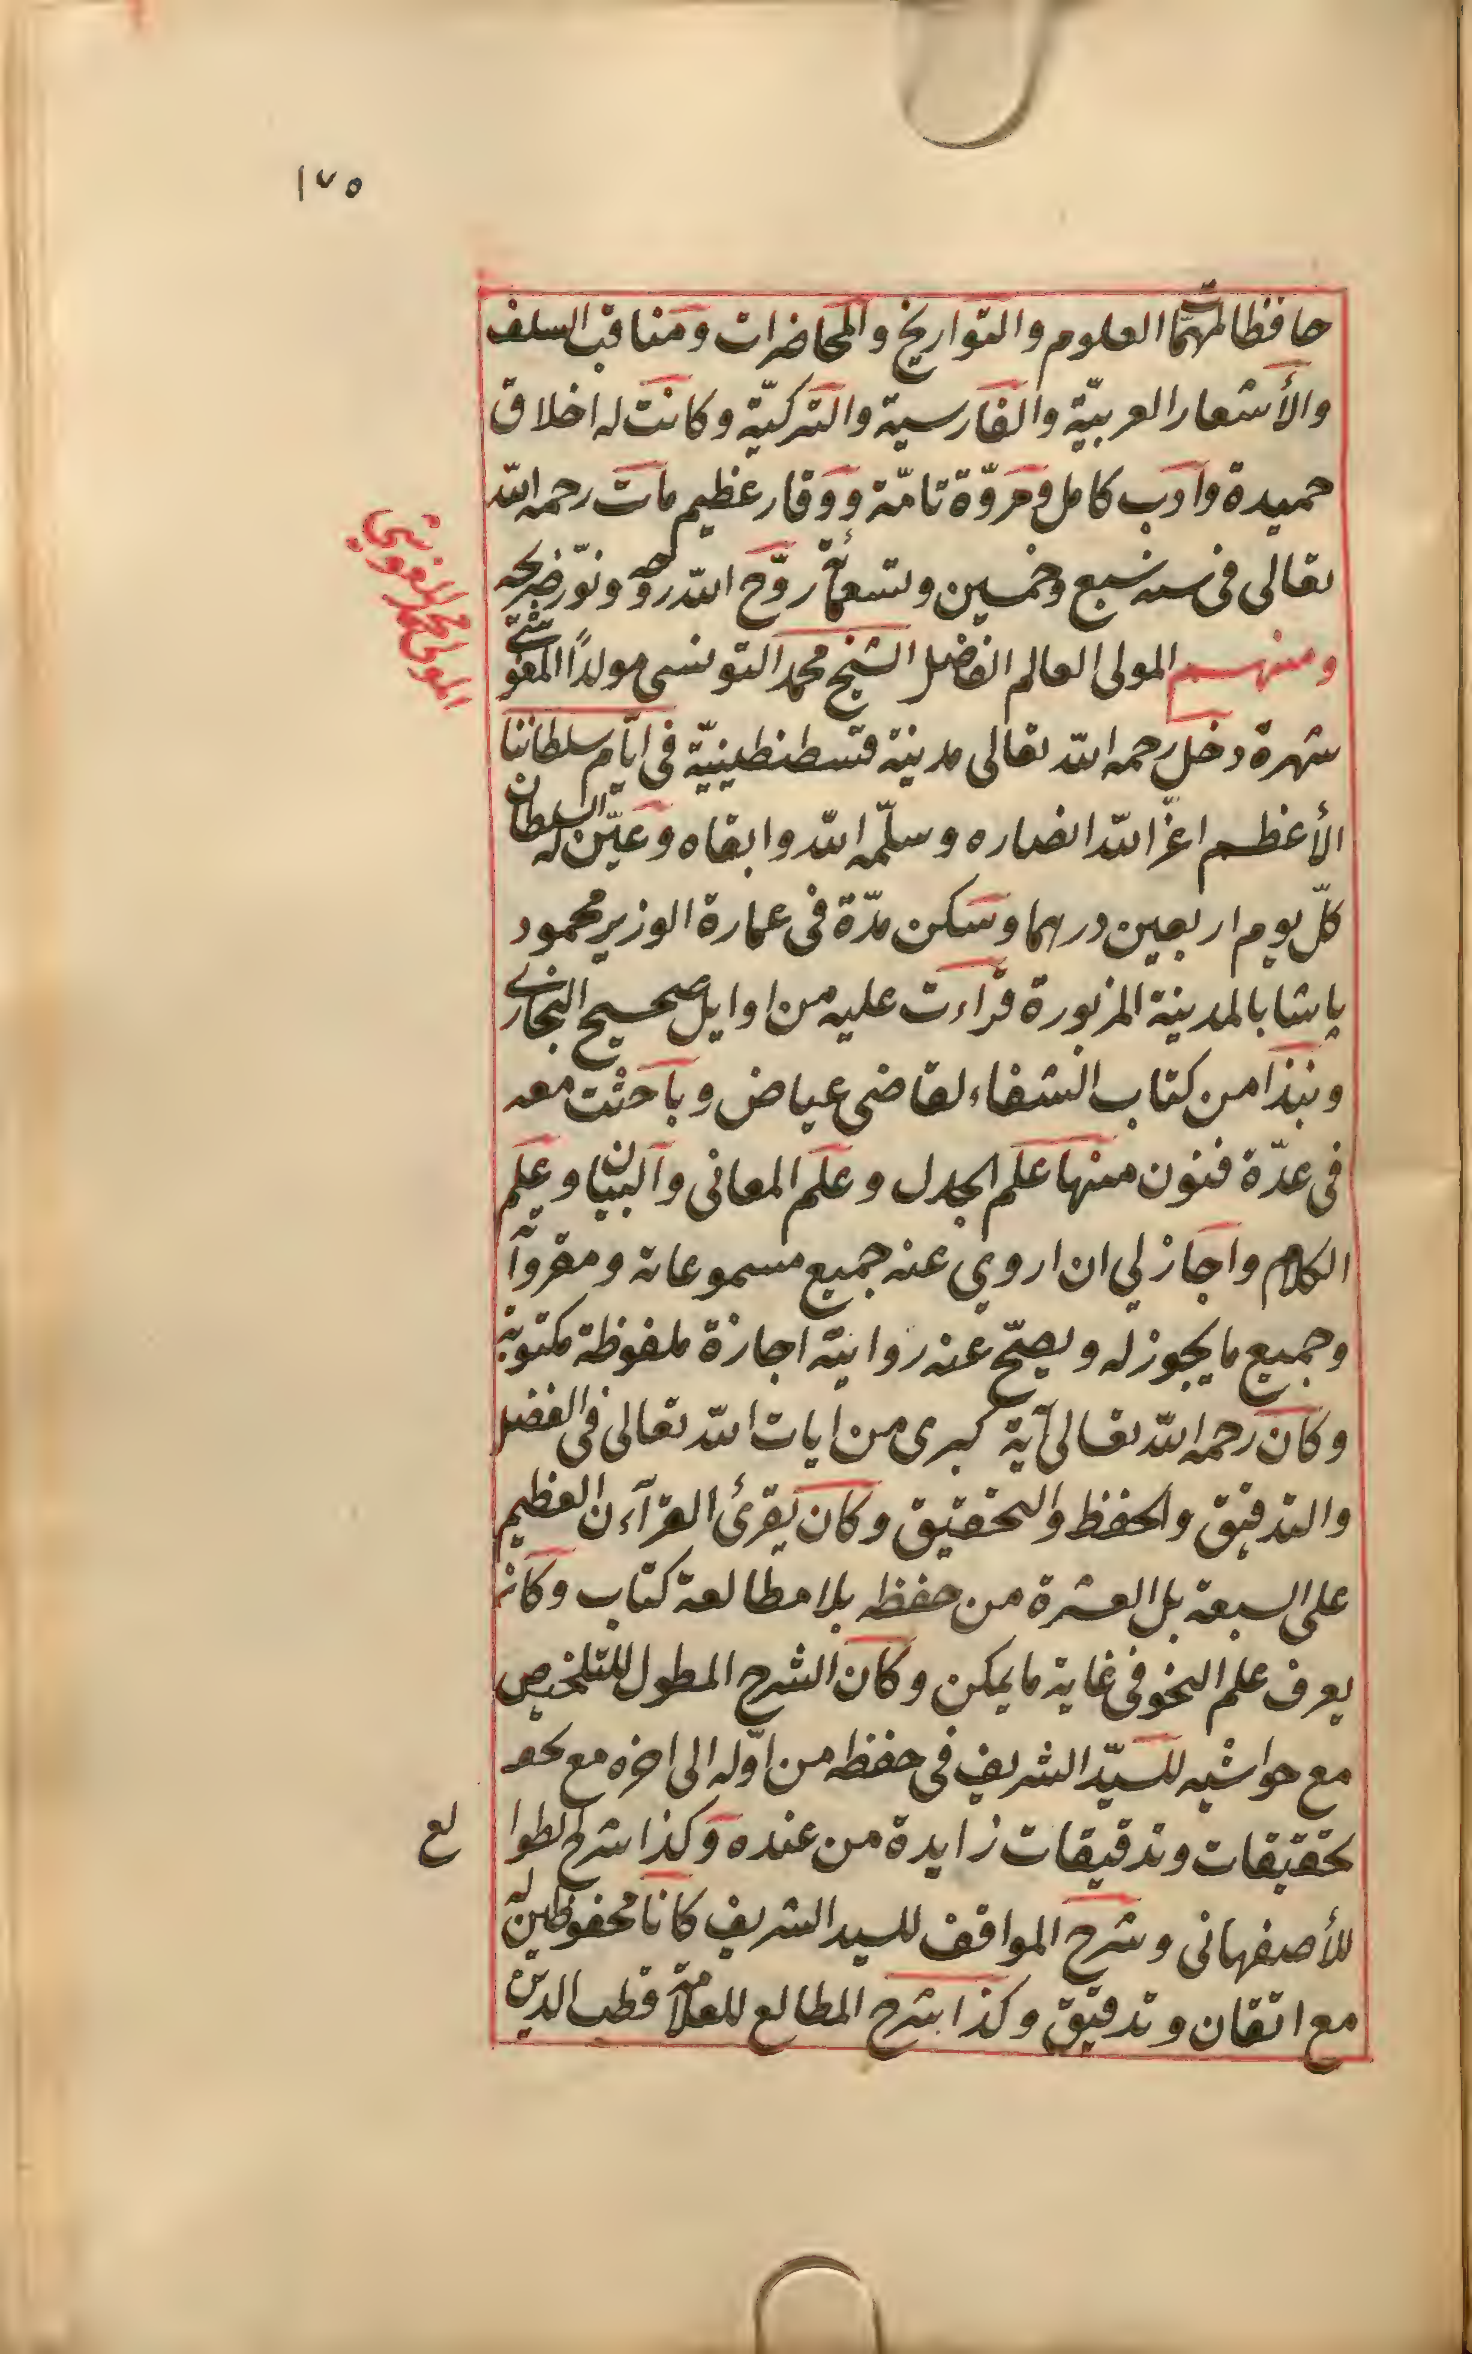 ١٧٥
حافظا لمهمات العلوم والتواريخ والمحاضرات ومناقب السلف
والأشعار العربيّة والفارسية والتركيّة وكانت له اخلاق
حميدة وادب كامل ومروّة تامّة ووقار عظيم مات رحمه الله
تعالى فى سنه سبع وخمسين وتسعمائة روّح الله روحه ونوّر ضريحه
ومنهم المولى العالم الفاضل الشيخ محمد التونسى مولدًا المغوشى
المولى محمد المغوشى
شهرة دخل رحمه الله تعالى مدينة قسطنطينيّة فى ايّام سلطاننا
الأعظم اعزّ الله انصاره وسلّمه الله وابقاه وعيّن له السلطان
كلّ يوم اربعين درهما وسكن مدّة فى عمارة الوزير محمود
پاشا بالمدينة المزبورة قراءت عليه من اوايل صحيح البخارى
ونبذا من كتاب الشفاء لقاضى عياض وباحثت معه
فى عدّة فنون منها علم الجدل وعلم المعانى والبيان وعلم
الكلام واجاز لي ان اروي عنه جميع مسموعاته ومقروآ
وجميع ما يجوز له ويصحّ عنه روايته اجازة ملفوظة مكتوبة
وكان رحمه الله تعالى آية كبرى من ايات الله تعالى فى الفضل
والتدقيق والحفظ والتحقيق وكان يقرئ القرآءن العظيم
على السبعة بل العشرة من حفظه بلا مطالعة كتاب وكان
يعرف علم النحو فى غاية ما يمكن وكان الشرح المطول للتلخيص
مع حواشيه للسيّد الشريف فى حفظه من اوّله الى اخره مع
تحقيقات وتدقيقات زايدة من عنده وكذا شرح الطوا
لع
للأصفهانى وشرح المواقف للسيد الشريف كانا محفوظين له
مع اتقان وتدقيق وكذا شرح المطالع للعلامة قطب الدين